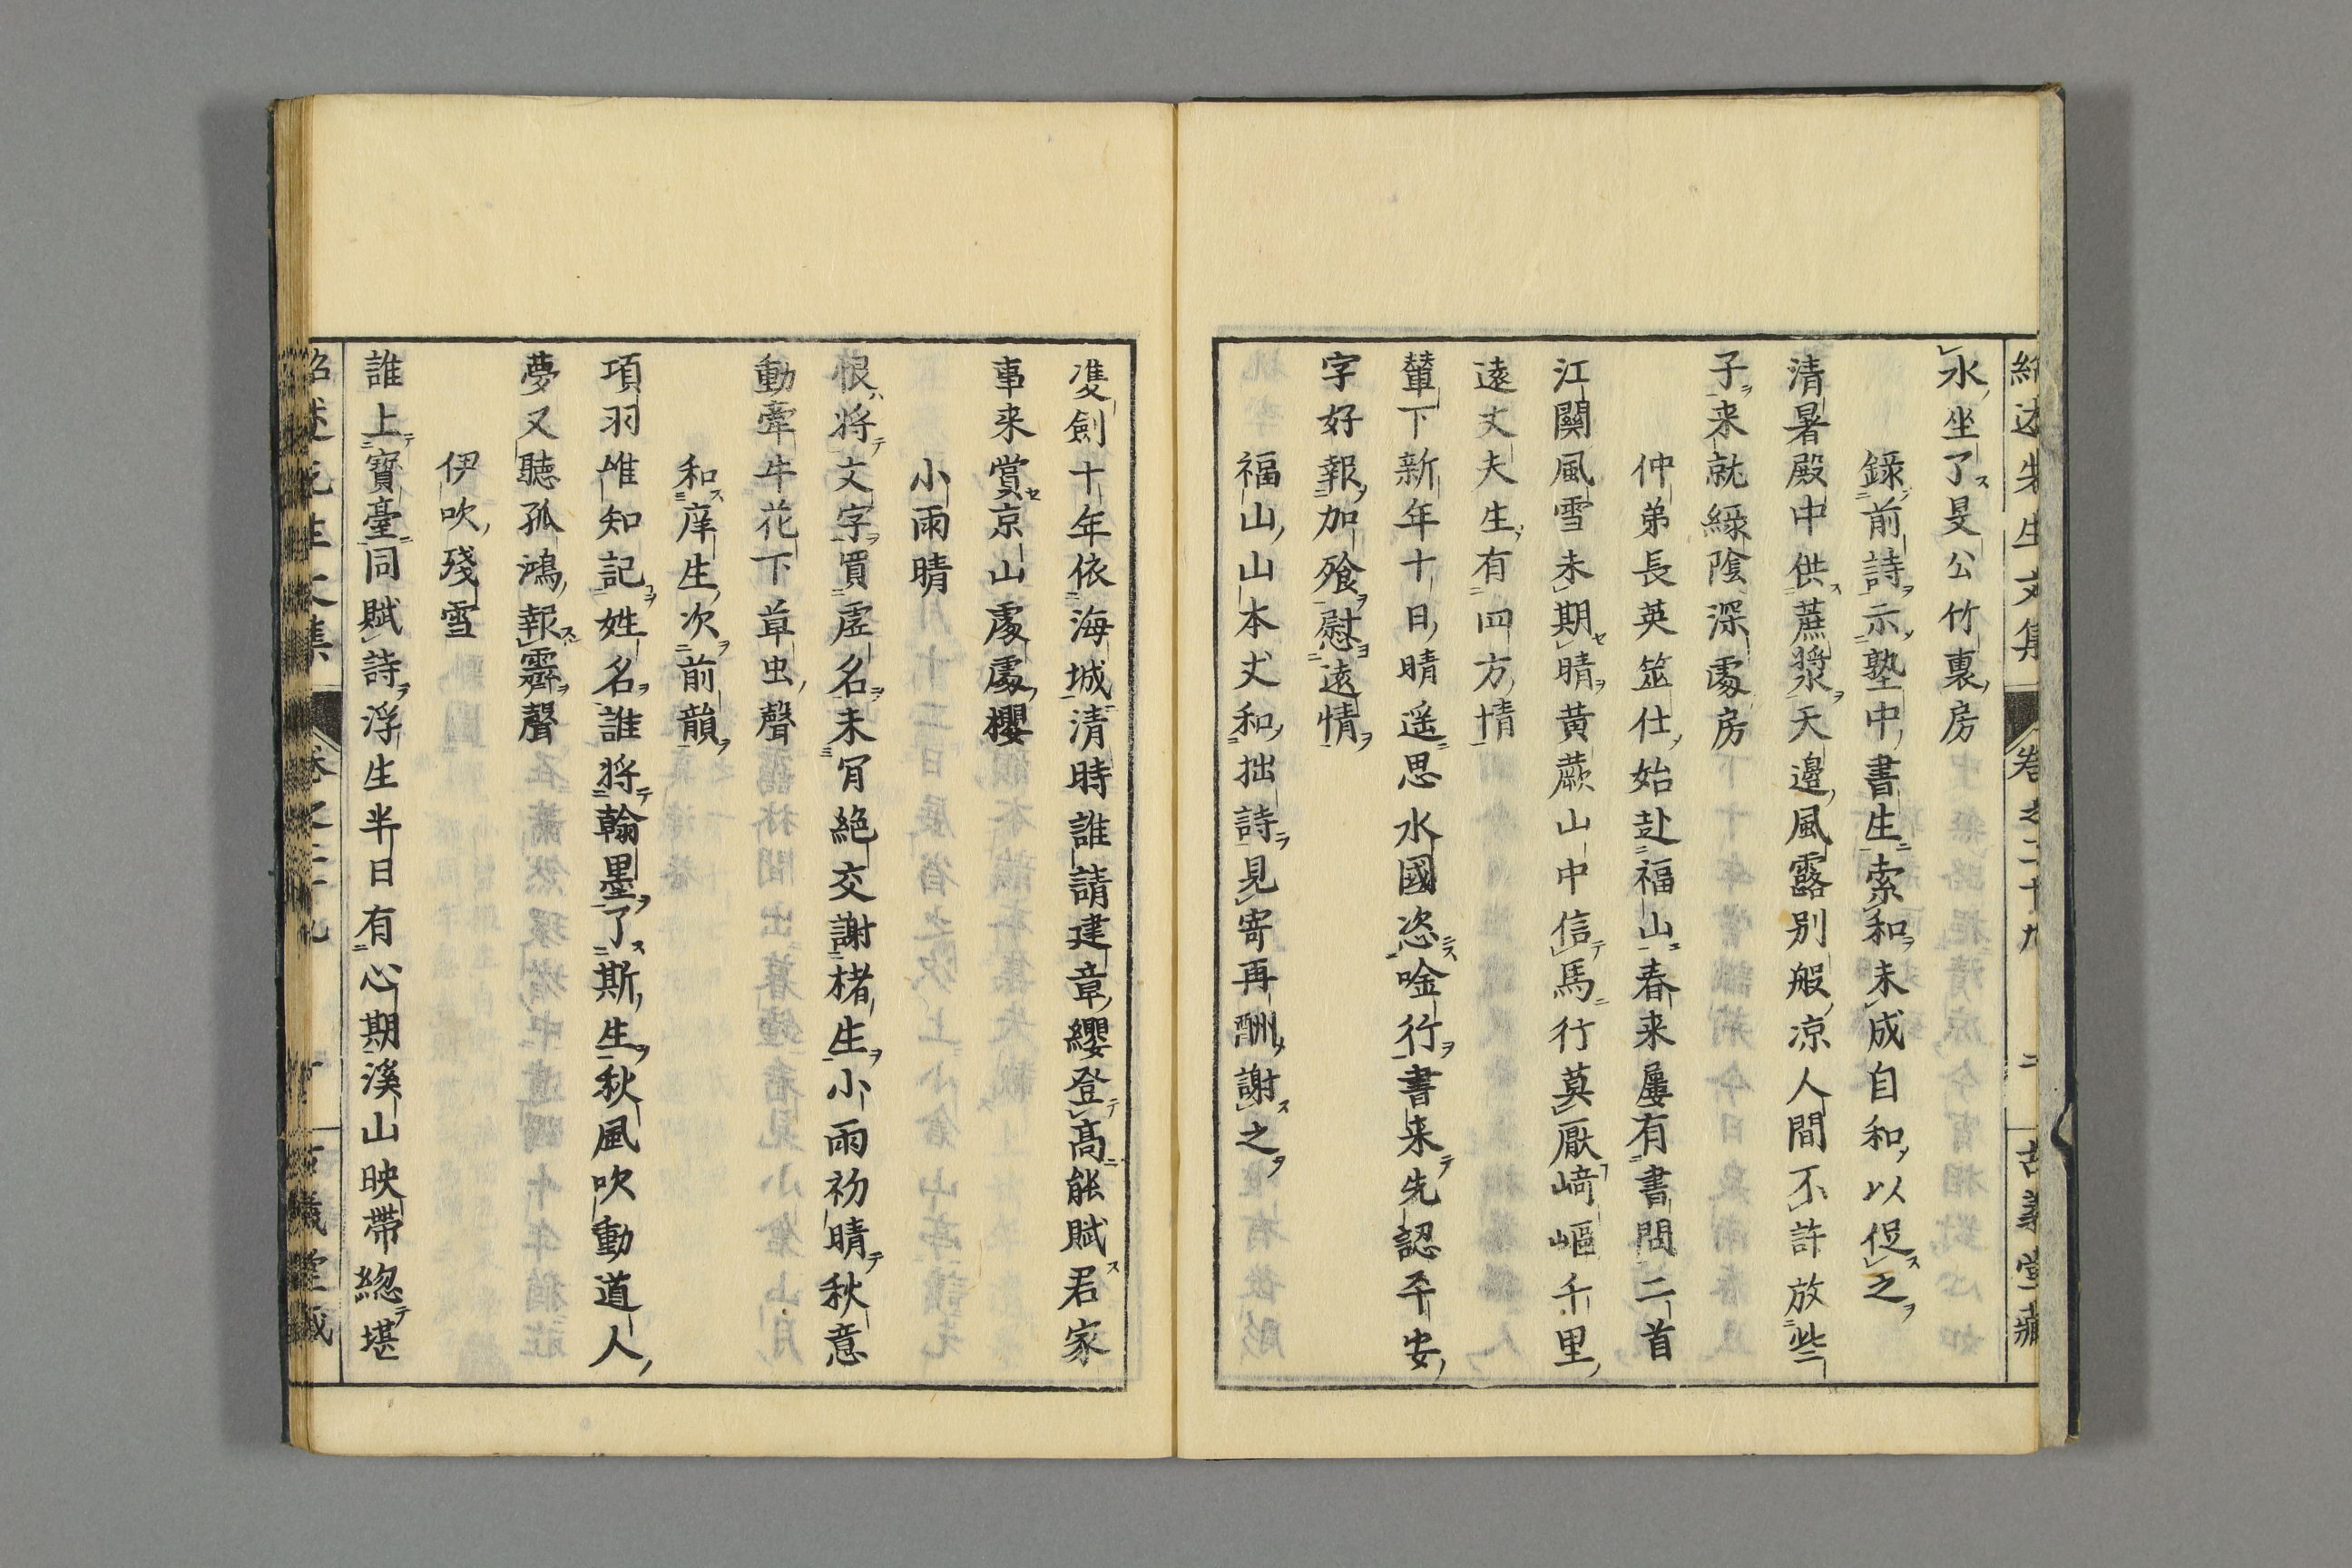 紹述先生文集 卷之二十九 二 古義堂藏
水坐了旻公竹裏房
錄前詩示塾中書生索和未成自和以促之
清暑殿中供蔗漿天邊風露別般凉人間不許放些
子来就綠陰深處房
仲弟長英筮仕始赴福山春来屢有書問二首
江關風雪未期晴黃蕨山中信馬行莫厭﨑嶇千里
遠丈夫生有四方情
輦下新年十日晴遥思水國恣唫行書来先認平安
字好報加飱慰遠情
福山山本丈和拙詩見寄再酬謝之
雙劍十年依海城清時誰請建章纓登髙能賦君家
事来賞京山處處櫻
小雨晴
恨將文字買虛名未肯絶交謝楮生小雨初晴秋意
動牽牛花下草虫聲
和庠生次前韻
項羽惟知記姓名誰將翰墨了斯生秋風吹動道人
夢又聽孤鴻報霽聲
伊吹殘雪
誰上寶臺同賦詩浮生半日有心期溪山映帶緫堪
紹述先生文集 卷之二十九 古義堂藏